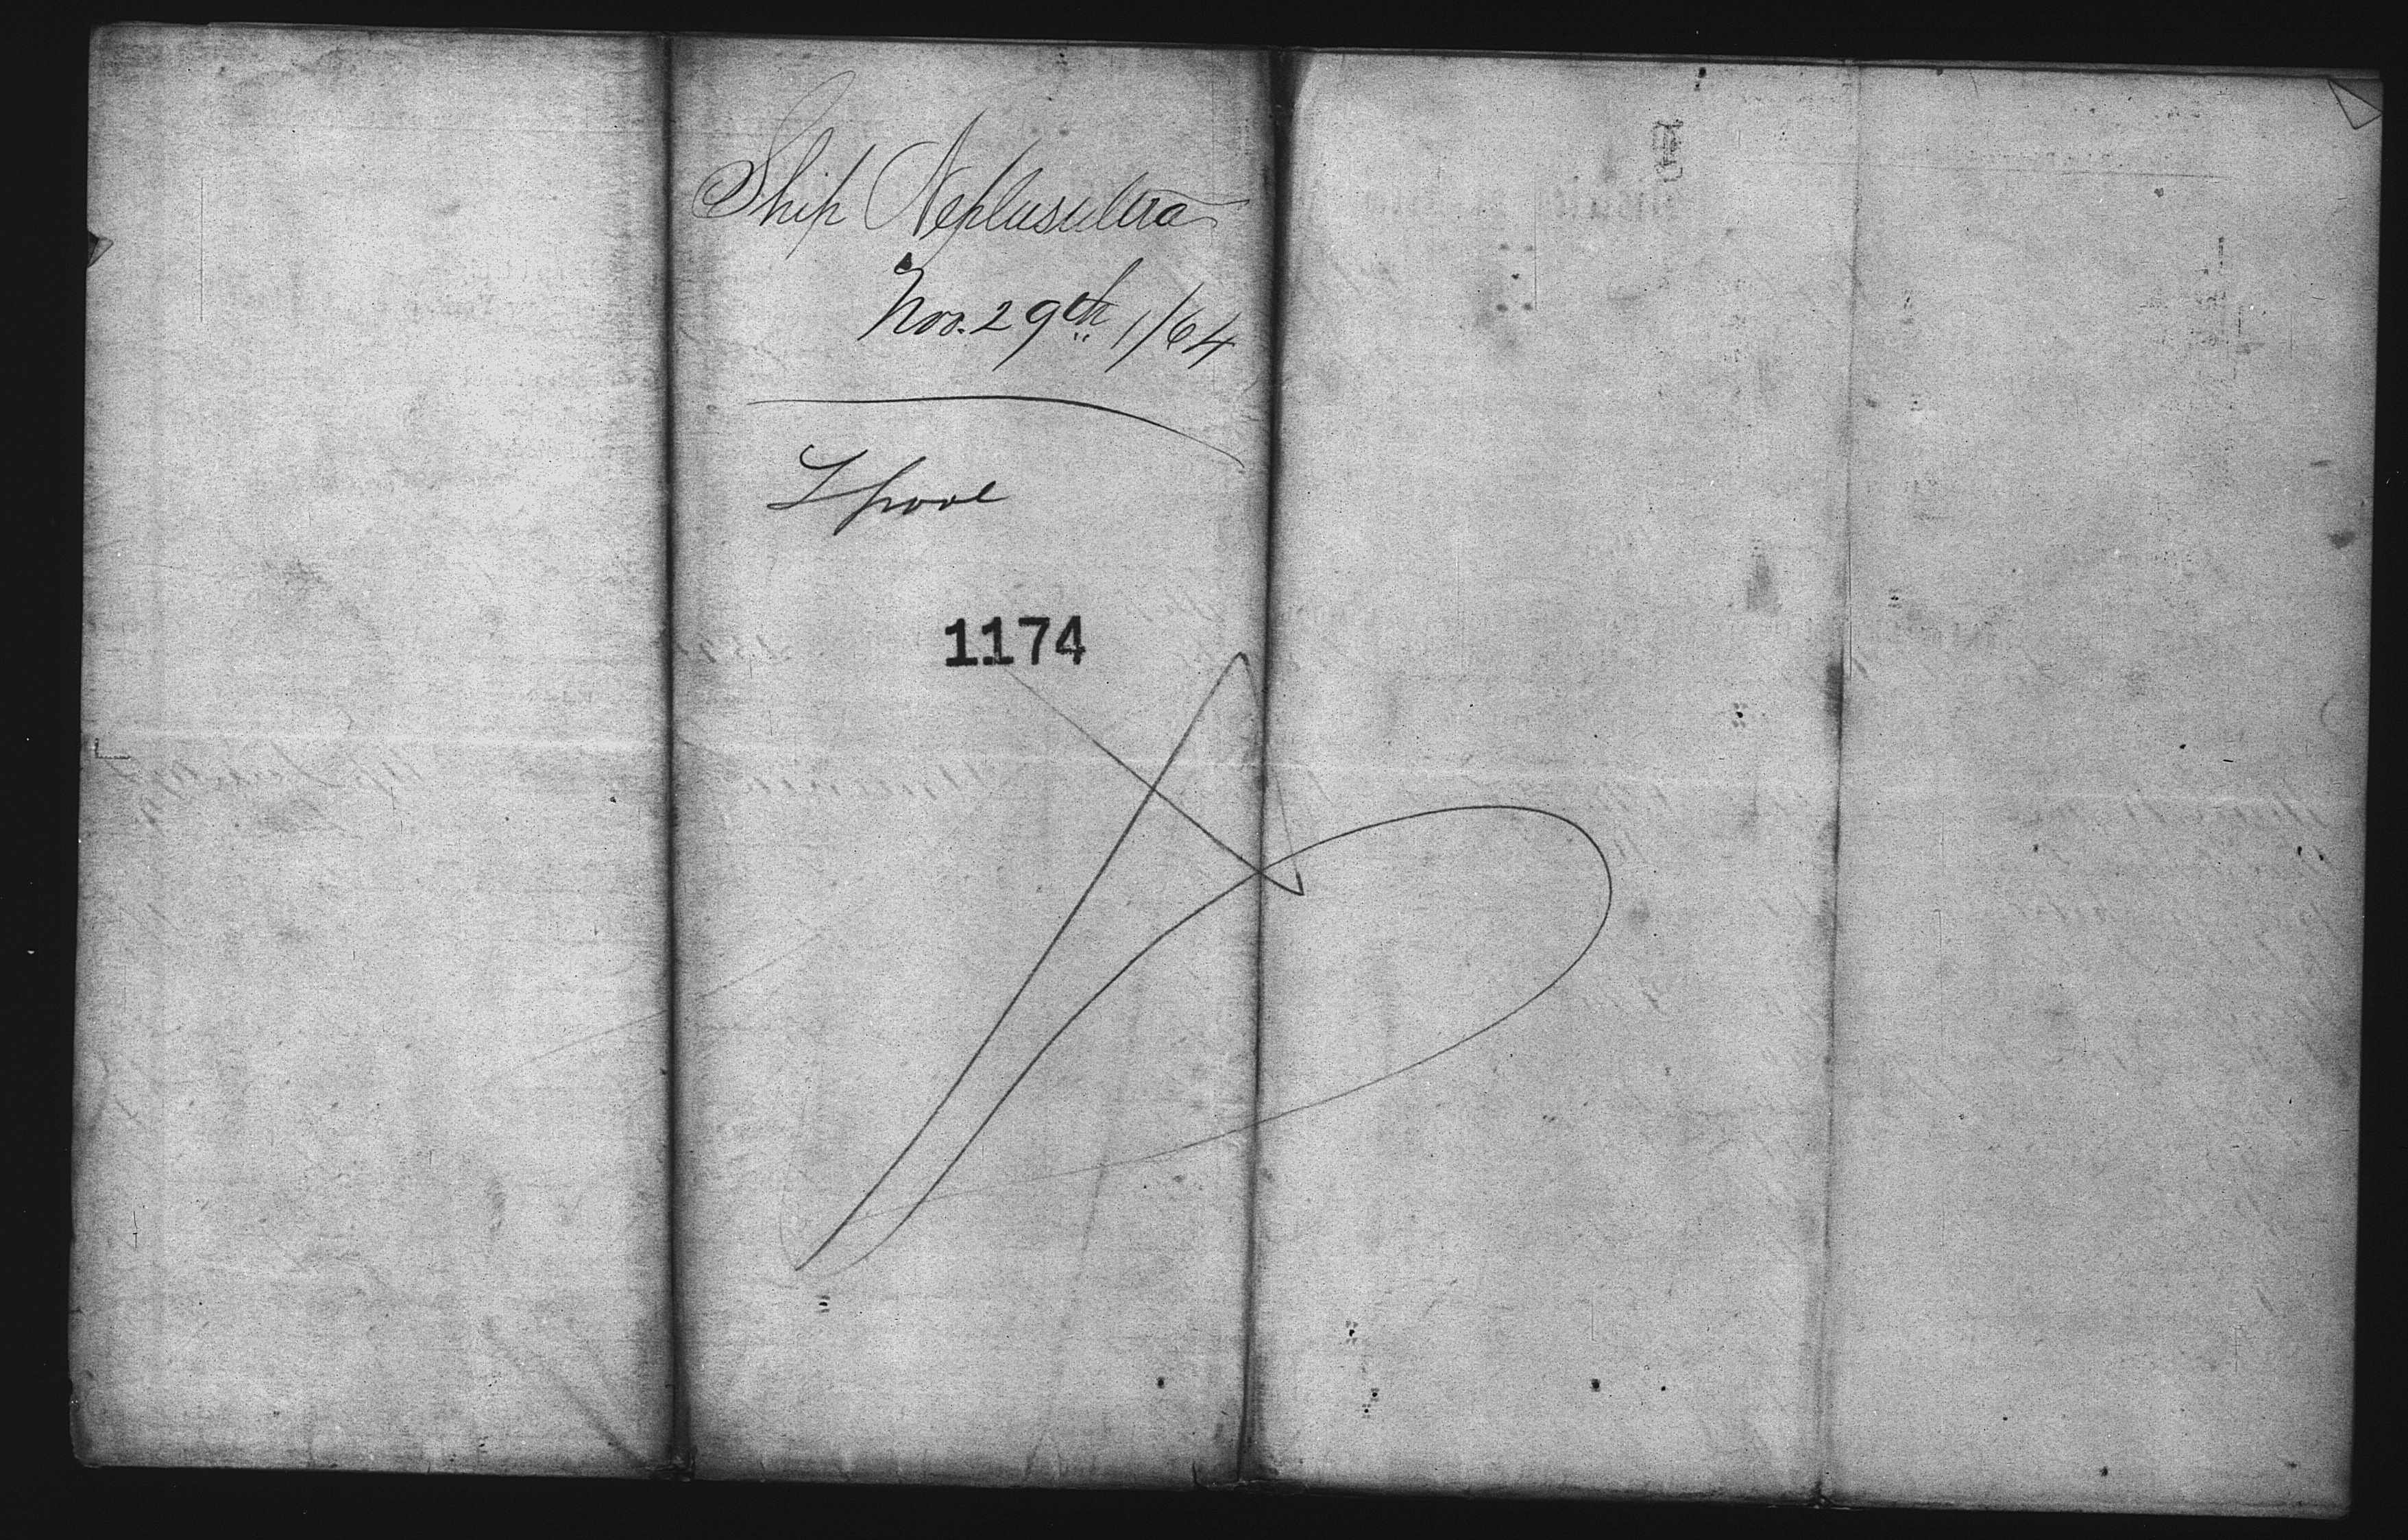 Ship Neplusultra
Nov. 29th 1/64
Lpool
1174